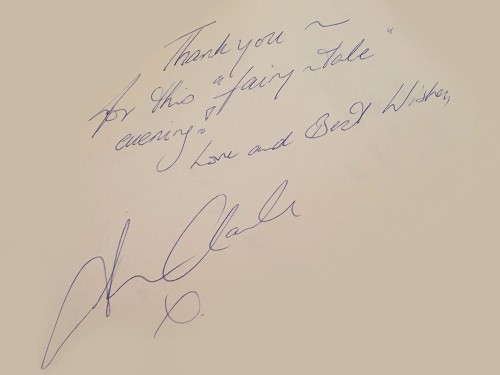 Thank you ~
for this "fairy-tale"
evening.
Love and Best Wishes,
Clarke
X.